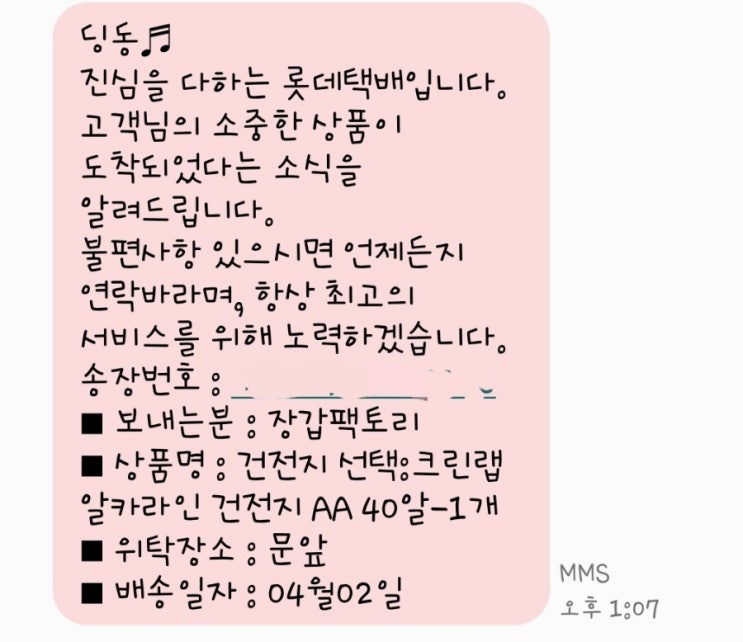 딩동♬
진심을 다하는 롯데택배입니다.
고객님의 소중한 상품이
도착되었다는 소식을
알려드립니다.
불편사항 있으시면 언제든지
연락바라며, 항상 최고의
서비스를 위해 노력하겠습니다.
송장번호 :
■ 보내는분 : 장갑팩토리
■ 상품명 : 건전지 선택:크린랩
알카라인 건전지 AA 40알-1개
■ 위탁장소 : 문앞
■ 배송일자 : 04월02일
MMS
오후 1:07